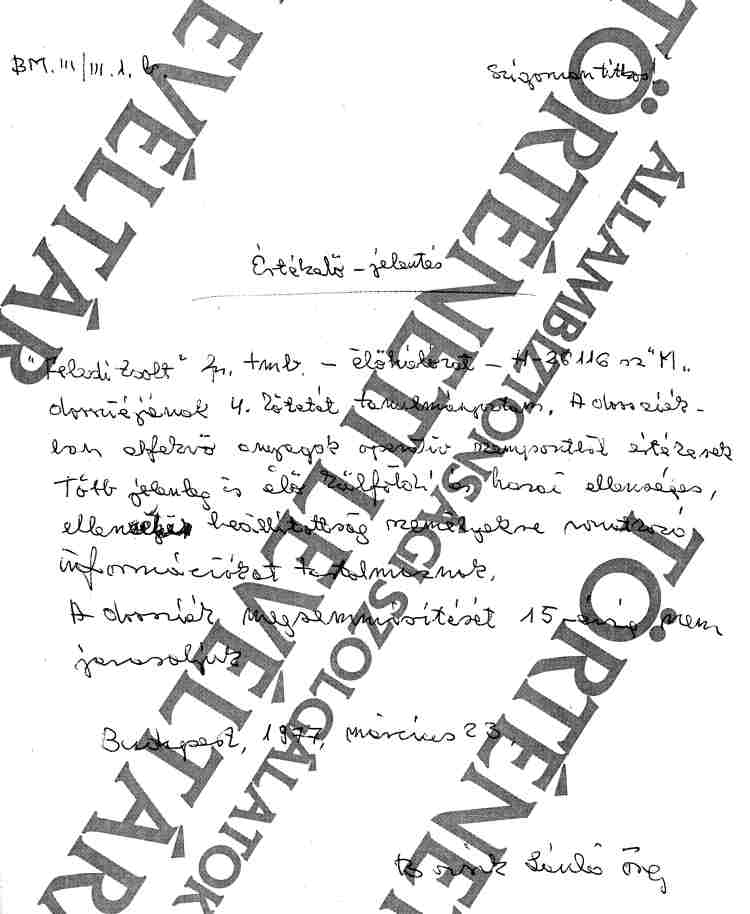 BM. III/III. 1. b.
Szigorúan titkos!
Értékelő - jelentés
"Feledi Zsolt" fn. tmb. - élőhálózat - H-26116 sz "M"
dossziéjának 4. kötetét tanulmányoztam. A dossziék-
ban elfekvő anyagok operatív szempontból értékesek
Több jelenleg is élő külföldi és hazai ellenséges,
ellenséges beállítottság személyekre vonatkozó
információkat tartalmaznak.
A dossziék megsemmisítését 15 évig nem
javasoljuk
Budapest, 1977, március 23.
László őrgy
TÖRTÉNETI LEVÉLTÁR
ÁLLAMBIZTONSÁGI SZOLGÁLATOK
TÖRTÉNE
LEVÉLTÁR